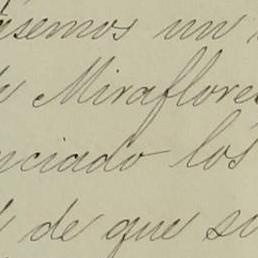 isemos un
Miraflores
nciado los
de que su